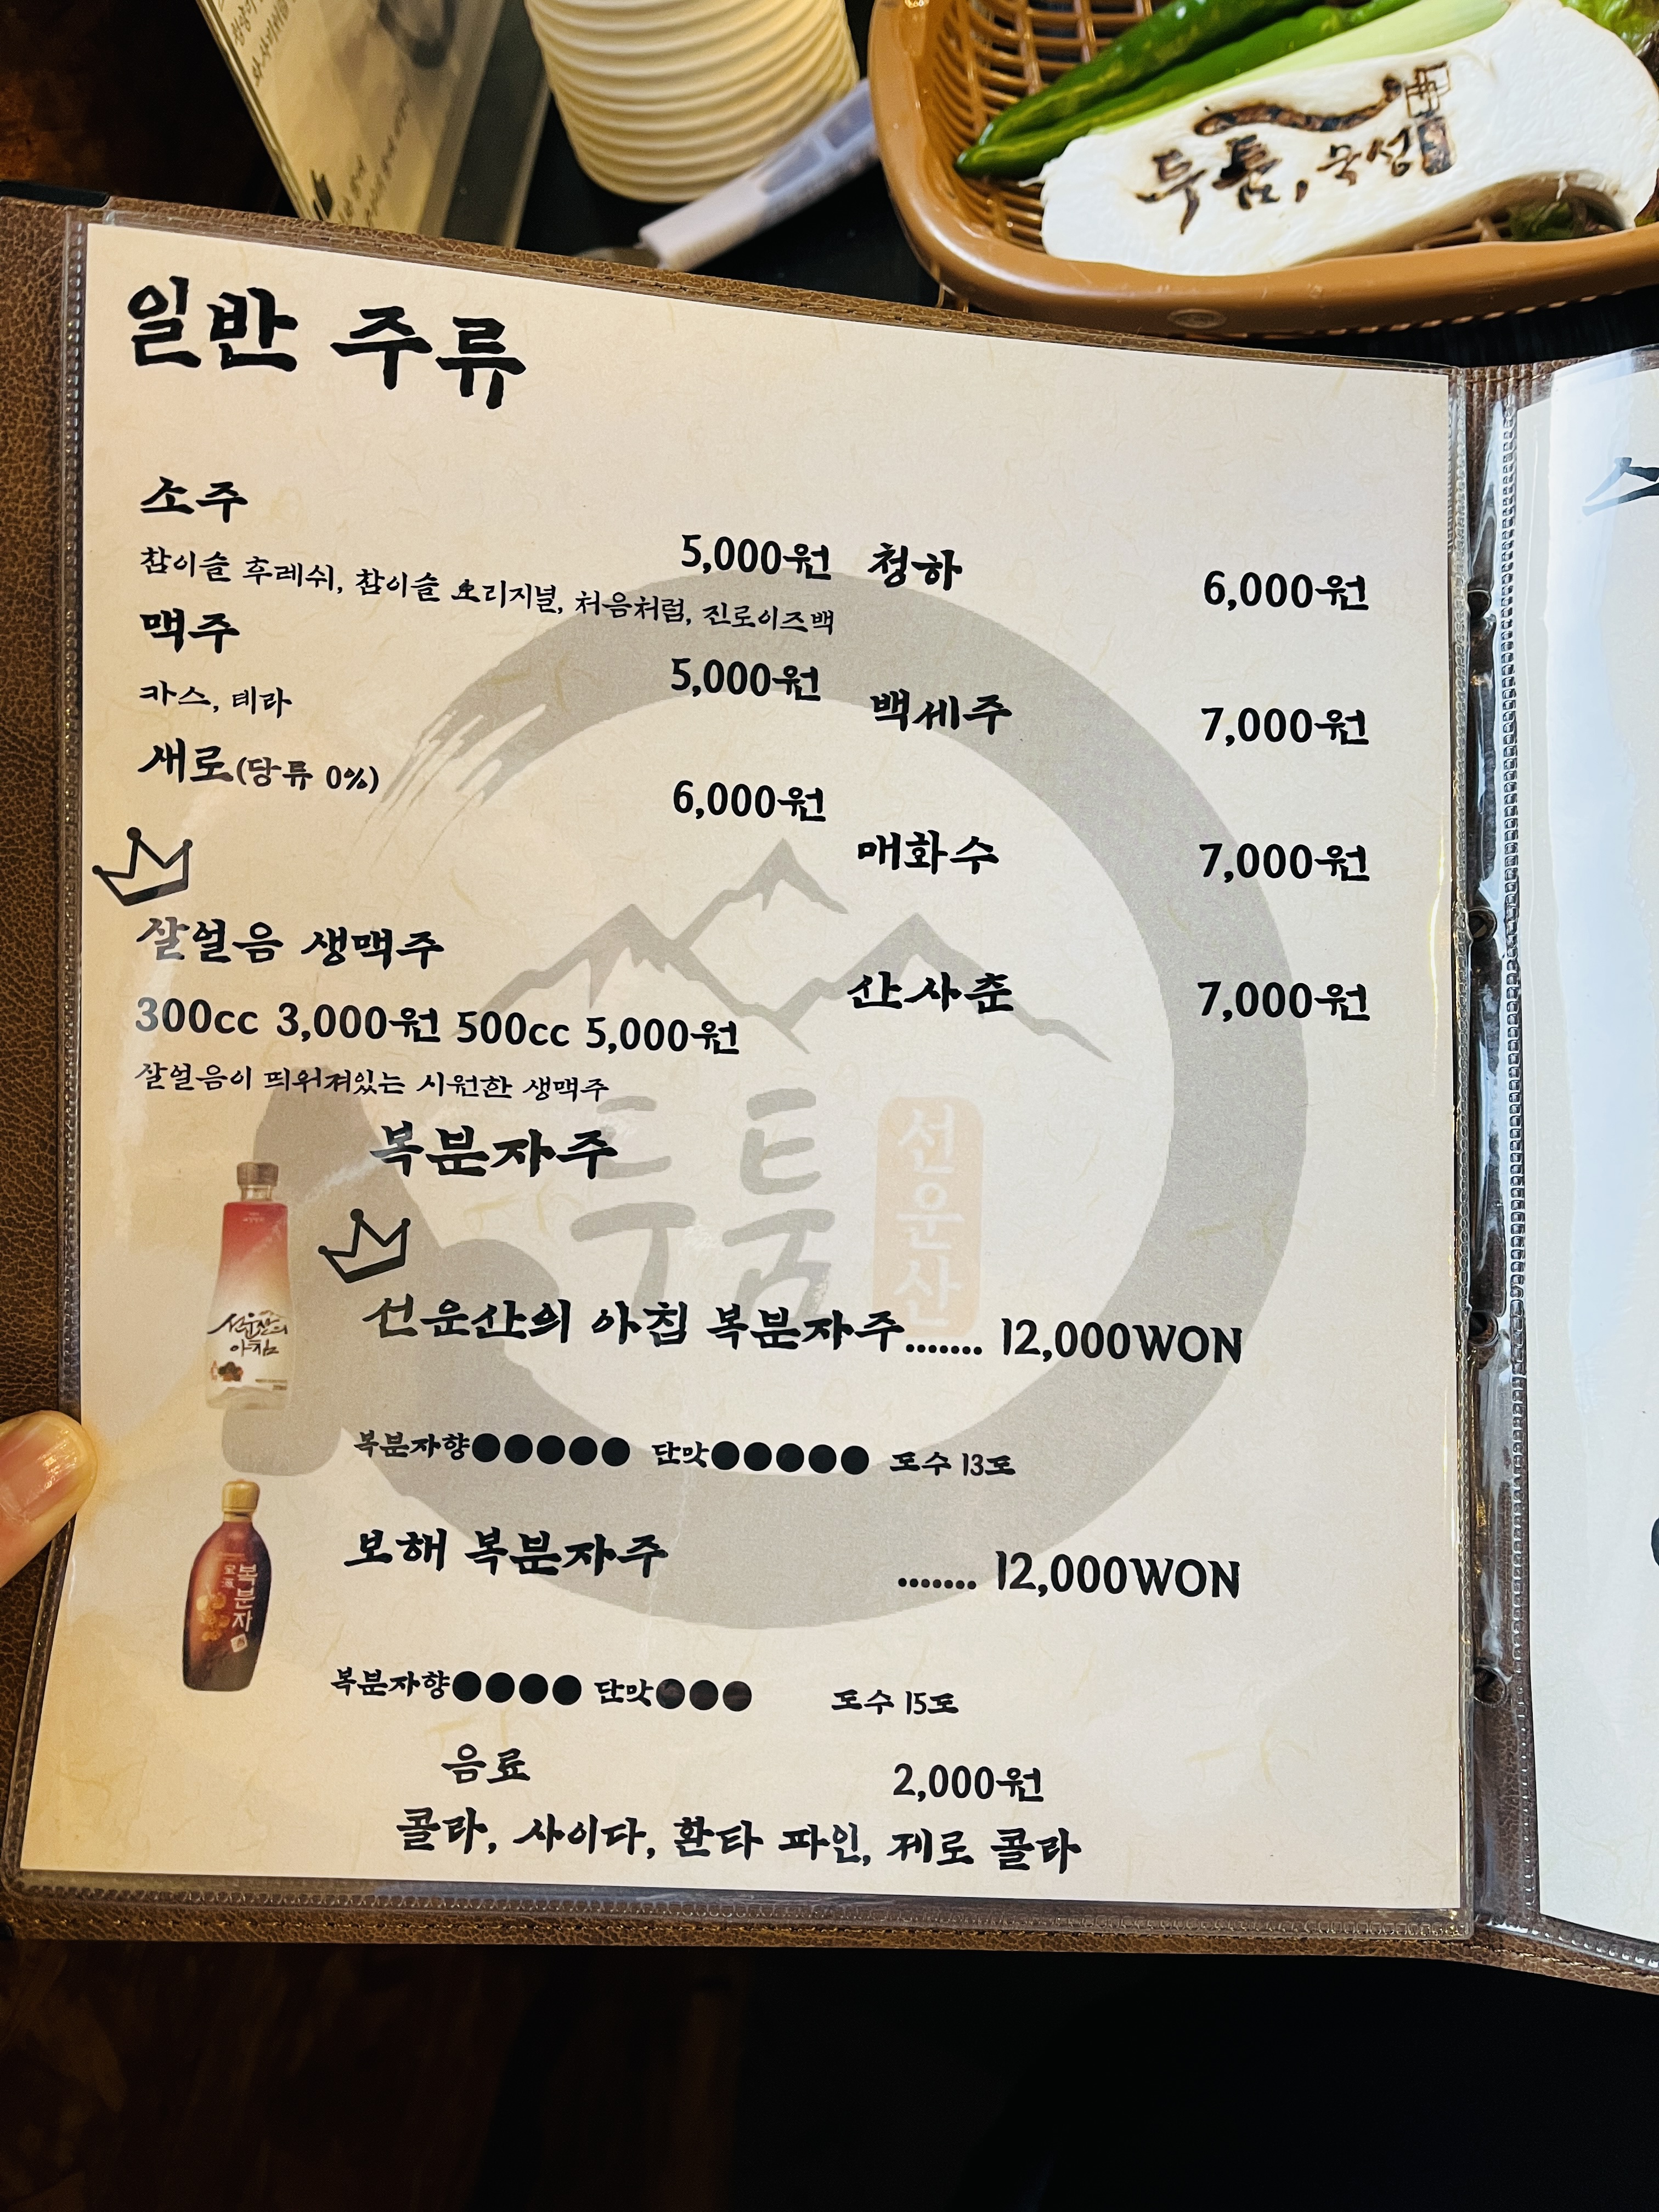 투툼, 숙성
일반 주류
소주
5,000원
참이슬 후레쉬, 참이슬 오리지널, 처음처럼, 진로이즈백
맥주
5,000원
카스, 테라
새로(당류 0%)
6,000원
청하 6,000원
백세주 7,000원
매화수 7,000원
산사춘 7,000원
살얼음 생맥주
300cc 3,000원 500cc 5,000원
살얼음이 띄워져있는 시원한 생맥주
투툼
선운산
복분자주
선운산의
아침
선운산의 아침 복분자주....... 12,000WON
복분자향●●●●● 단맛●●●●● 도수 13도
복분자
보해 복분자주 ....... 12,000WON
복분자향●●●● 단맛●●● 도수 15도
음료 2,000원
콜라, 사이다, 환타 파인, 제로 콜라